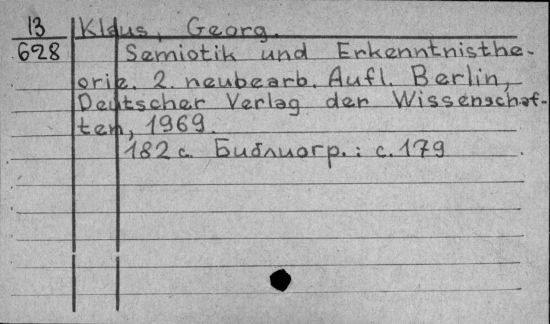 13 Klaus, Georg.
628 Semiotik und Erkenntnisthe-
orie. 2. neubearb. Aufl. Berlin,
Deutscher Verlag der Wissenschaf-
ten, 1969.
182 с. Библиогр.: с. 179